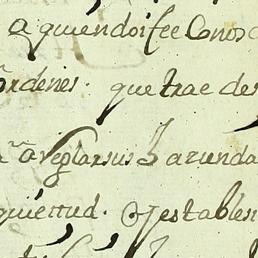 a quien doi fee Conosc
ordenes. que trae des
a Reglar sus
quiettud. Y establen